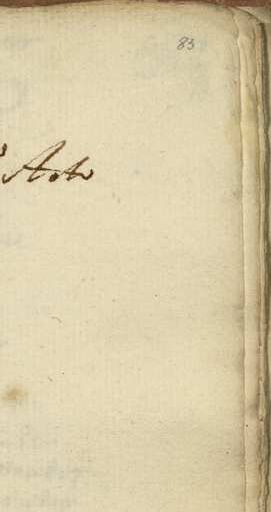 83
Acto